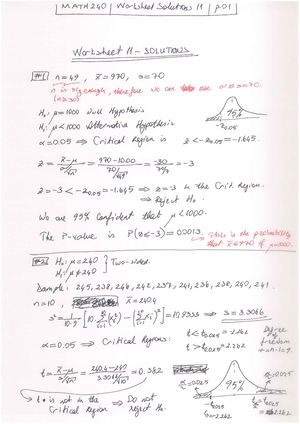 MATH240 | Worksheet Solutions 11 | p.01
Worksheet 11 - SOLUTIONS
#1 n=49, x̄=970, s=70
n is big enough, therefore we can use σ≈s=70.
(n≥30)
H₀: μ=1000 Null Hypothesis
H₁: μ<1000 Alternative Hypothesis
95%
-z₀.₀₅
α=0.05 ⇒ Critical Region is z<-z₀.₀₅=-1.645.
z = (x̄-μ)/(σ/√n) = (970-1000)/(70/√49) = -30/(70/7) = -3
z=-3<-z₀.₀₅=-1.645 ⇒ z=-3 in the Crit. Region.
⇒ Reject H₀.
We are 95% Confident that μ<1000.
The P-value is P(z≤-3)=0.0013.
This is the probability
that x̄≤970 if μ=1000.
#2 H₀: μ=240
H₁: μ≠240 } Two-sided.
Sample: 245, 238, 246, 242, 237, 241, 236, 238, 240, 241.
n=10, x̄=240.4
s²= 1/(10·9) [10·Σxᵢ² - (Σxᵢ)²] = 10.9333 ⇒ s=3.3066
α=0.05 ⇒ Critical Regions: t<-t₀.₀₂₅=-2.262
t>t₀.₀₂₅=2.262
Degree
of
freedom
=n-1=9.
t = (x̄-μ)/(s/√n) = (240.4-240)/(3.3066/√10) = 0.382
α/2=0.025
95%
α/2=0.025
-t₀.₀₂₅
=-2.262
t₀.₀₂₅
=2.262
⇒ t is not in the Critical Region ⇒ Do not Reject H₀.